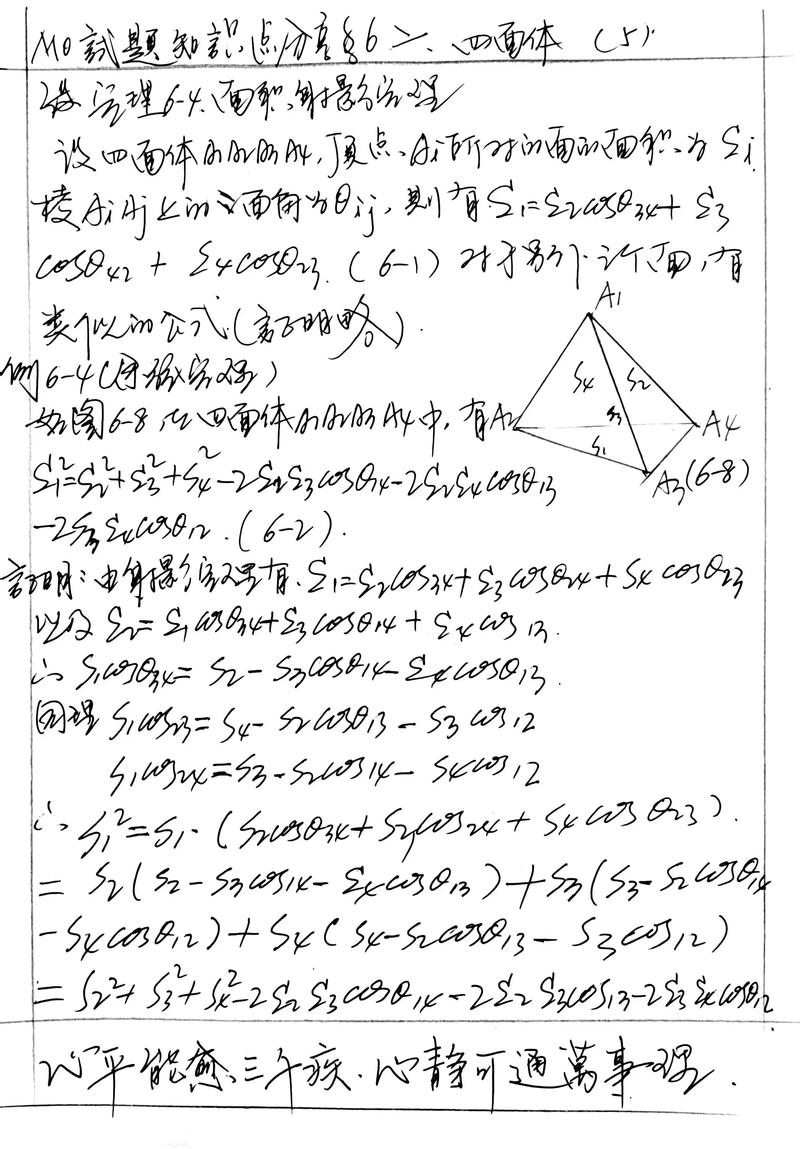 MO試題知識点分享86 二、四面体 (5)
定理6-4.面积射影定理
设四面体A1A2A3A4,顶点Ai所对的面的面积为Si
棱AiAj上的二面角为θij,则有S1=S2cosθ34+S3
cosθ42+S4cosθ23.(6-1)对于另外三个面,有
类似的公式(証明略).
例6-4(余弦定理)
如图6-8,在四面体A1A2A3A4中,有
S1²=S2²+S3²+S4²-2S2S3cosθ14-2S2S4cosθ13
-2S3S4cosθ12.(6-2).
A1
S4 S2
S3
S1
A2
A4
A3(6-8)
証明:由射影定理有.S1=S2cos34+S3cosθ24+S4cosθ23
以及S2=S1cosθ34+S3cosθ14+S4cos13.
∴S1cosθ34=S2-S3cosθ14-S4cosθ13.
同理 S1cos23=S4-S2cosθ13-S3cos12
S1cos24=S3-S2cos14-S4cos12
∴S1²=S1·(S2cosθ34+S3cos24+S4cosθ23).
=S2(S2-S3cos14-S4cosθ13)+S3(S3-S2cosθ14
-S4cosθ12)+S4(S4-S2cosθ13-S3cos12)
=S2²+S3²+S4²-2S2S3cosθ14-2S2S3cos13-2S3S4cosθ12
心平能愈三千疾.心静可通萬事理.